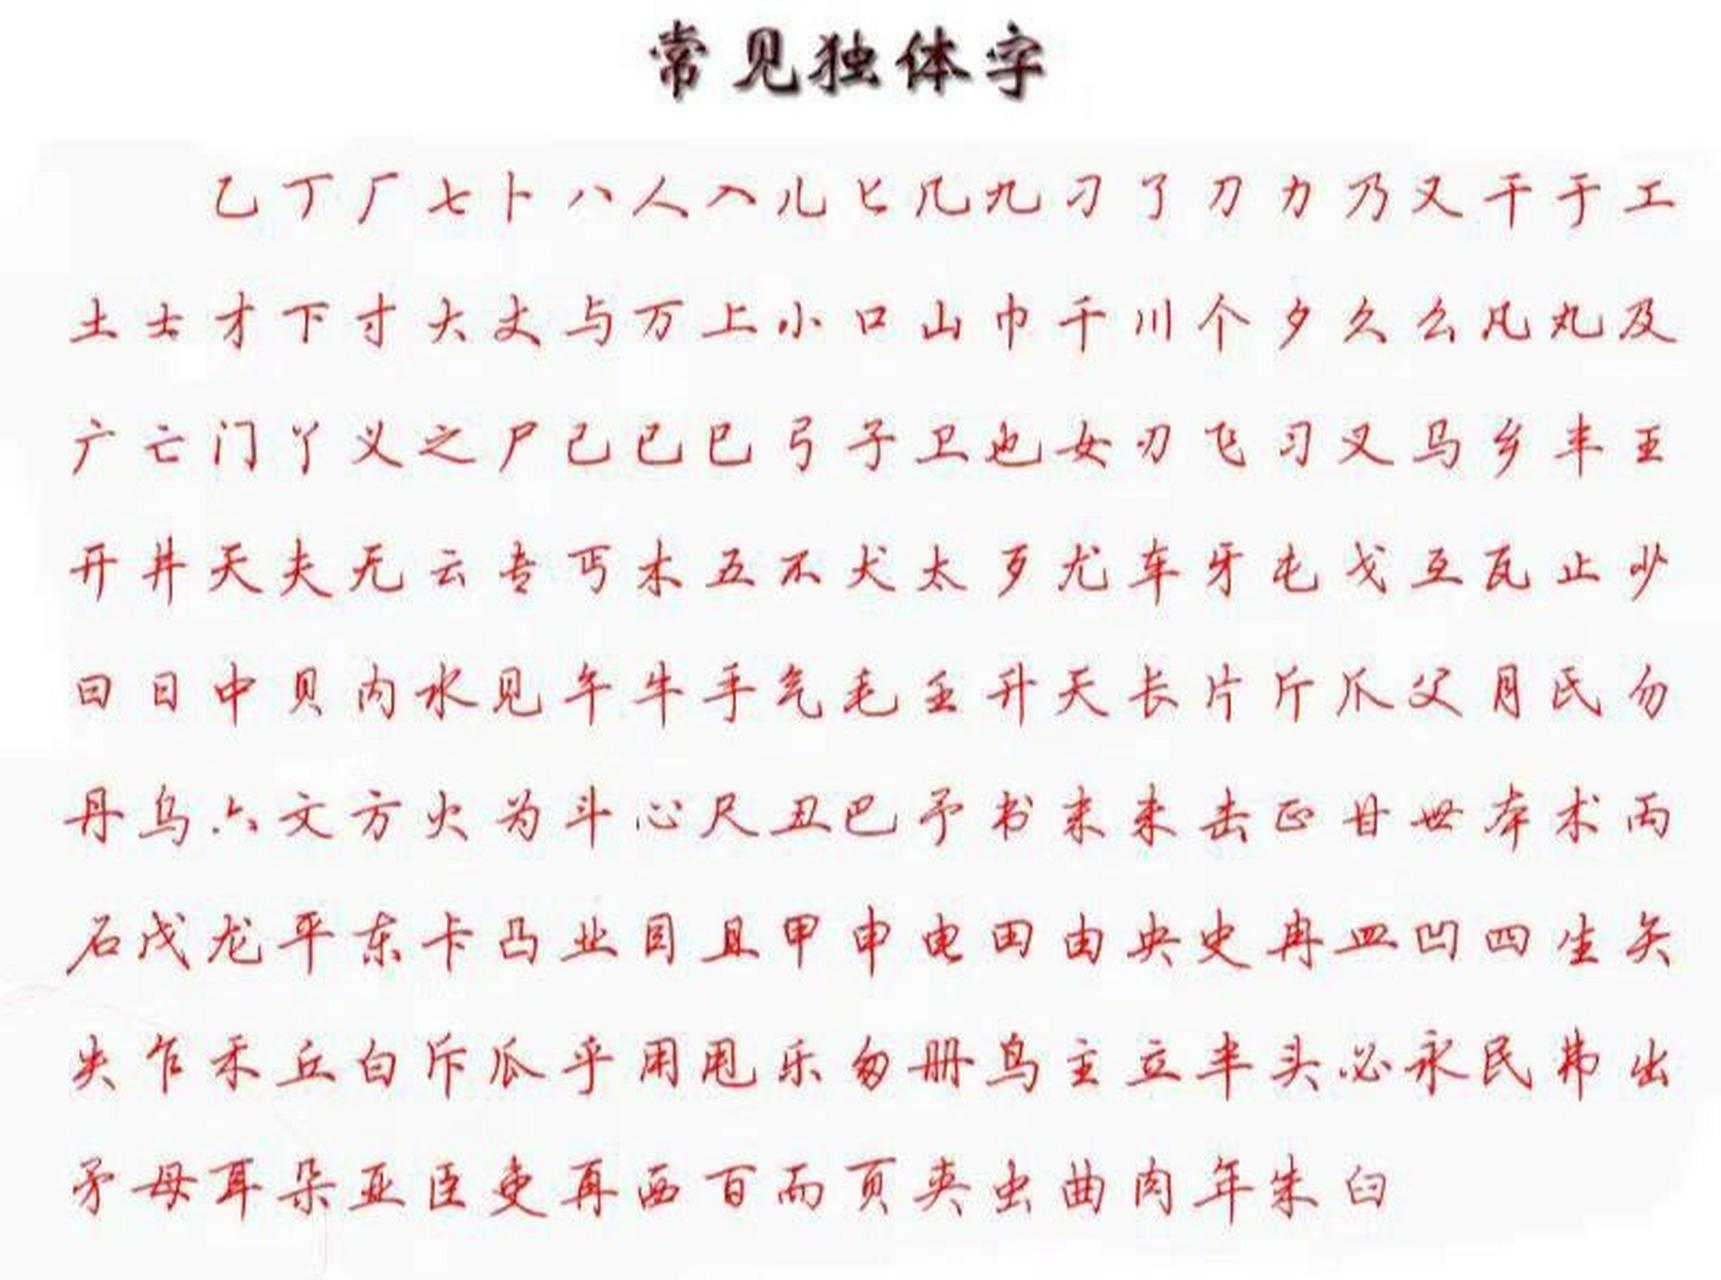 常见独体字
乙丁厂七卜八人入儿匕几九刁了刀力乃又干于工
土士才下寸大丈与万上小口山巾千川个夕久么凡丸及
广亡门丫义之尸己已巳弓子卫也女刃飞习叉马乡丰王
开井天夫无云专丐木五不犬太歹尤车牙屯戈互瓦止少
曰日中贝内水见午牛手气毛壬升夭长片斤爪父月氏勿
丹乌六文方火为斗心尺丑巴予书末未击正甘世本术丙
石戊龙平东卡凸业目且甲申电田由央史冉皿凹四生矢
失乍禾丘白斥瓜乎用甩乐匆册鸟主立半头必永民弗出
矛母耳朵亚臣吏再西百而页夹虫曲肉年朱臼